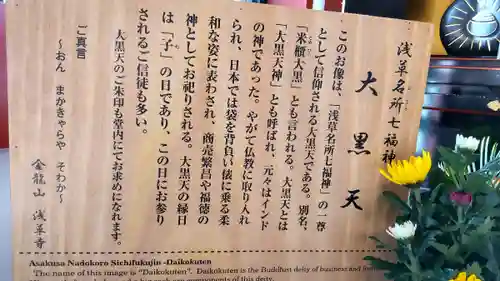 浅草名所七福神
大黒天
このお像は、「浅草名所七福神」の一尊
として信仰される大黒天である。別名、
「米櫃大黒」とも言われる。大黒天とは
「大黒天神」とも呼ばれ、元々はインド
の神であった。やがて仏教に取り入れ
られ、日本では袋を背負い俵に乗る柔
和な姿に表わされ、商売繁昌や福徳の
神としてお祀りされる。大黒天の縁日
は「子」の日であり、この日にお参り
されるご信徒も多い。
大黒天のご朱印も堂内にてお求めになれます。
ご真言
〜おん まかきゃらや そわか〜
金龍山 浅草寺
Asakusa Nadokoro Sichifukujin -Daikokuten
The name of this image is "Daikokuten". Daikokuten is the Buddhist deity of business and